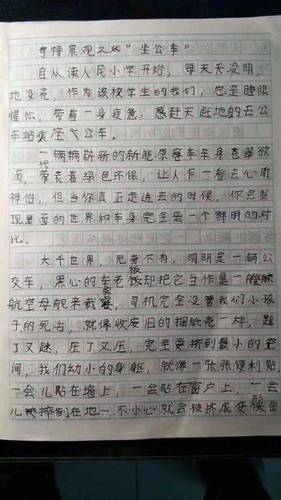 奇特景观之处"坐公车"
自从读人民小学开始，每天天没明，
地没亮，作为该校学生的我们，总是睡眼
惺忪，带着一身疲惫，感赶天赶地的去公
车站坐公车。
一辆辆崭新的新能源客车车身苍翠欲
滴，代表着绿色环保，让人一看去心旷
神怡，但当你真正走进去的时候，你会发
现里面的世界和车身完全是一个鲜明的对
比。
大千世界，无奇不有，明明是一辆公
交车，黑心的车老板却把它当作是一艘
航空母舰来载客，司机完全没管我们小孩
子的死活，就像收废旧的捆纸壳一样，
了又，压了又压，完全要挤到最小的空
间，我们幼小的身躯，就像一张张便利贴
一会儿贴在墙上，一会贴在窗户上，一会
儿摔倒在地一不小心就会被挤成变